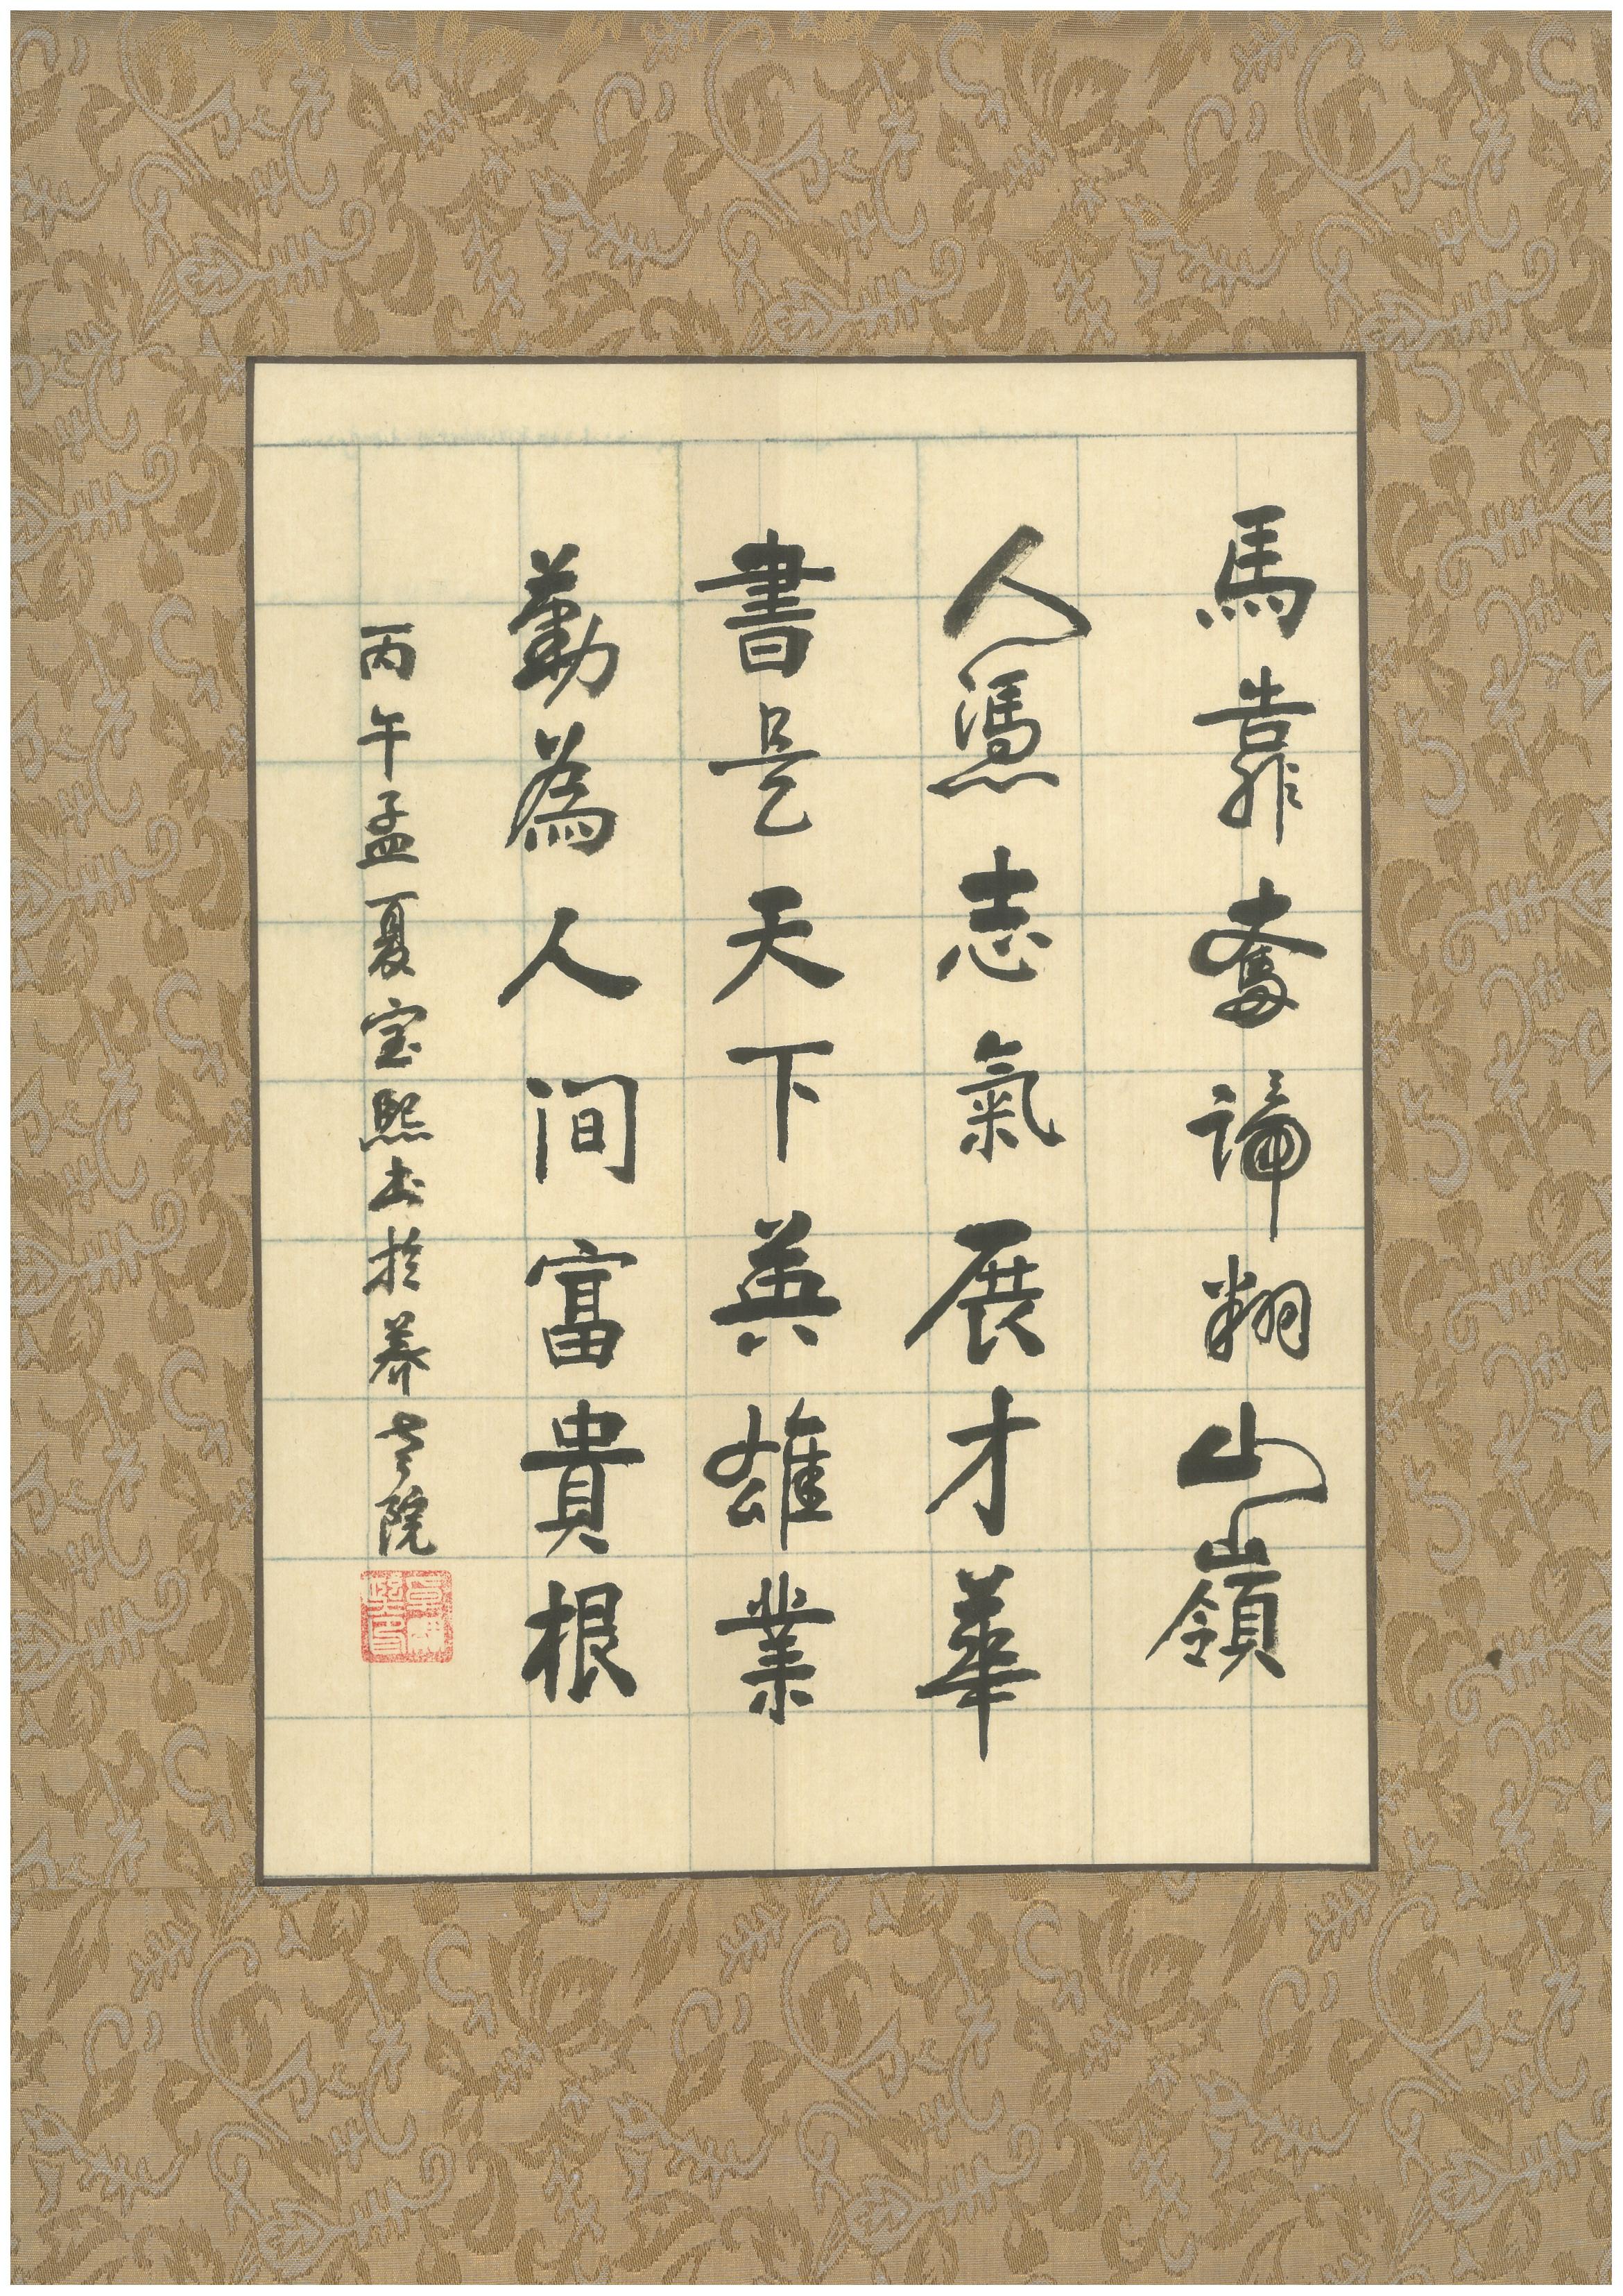 馬靠奮蹄翔山嶺
人憑志氣展才華
書是天下英雄業
勤為人间富貴根
丙午孟夏宝熙书於养老院